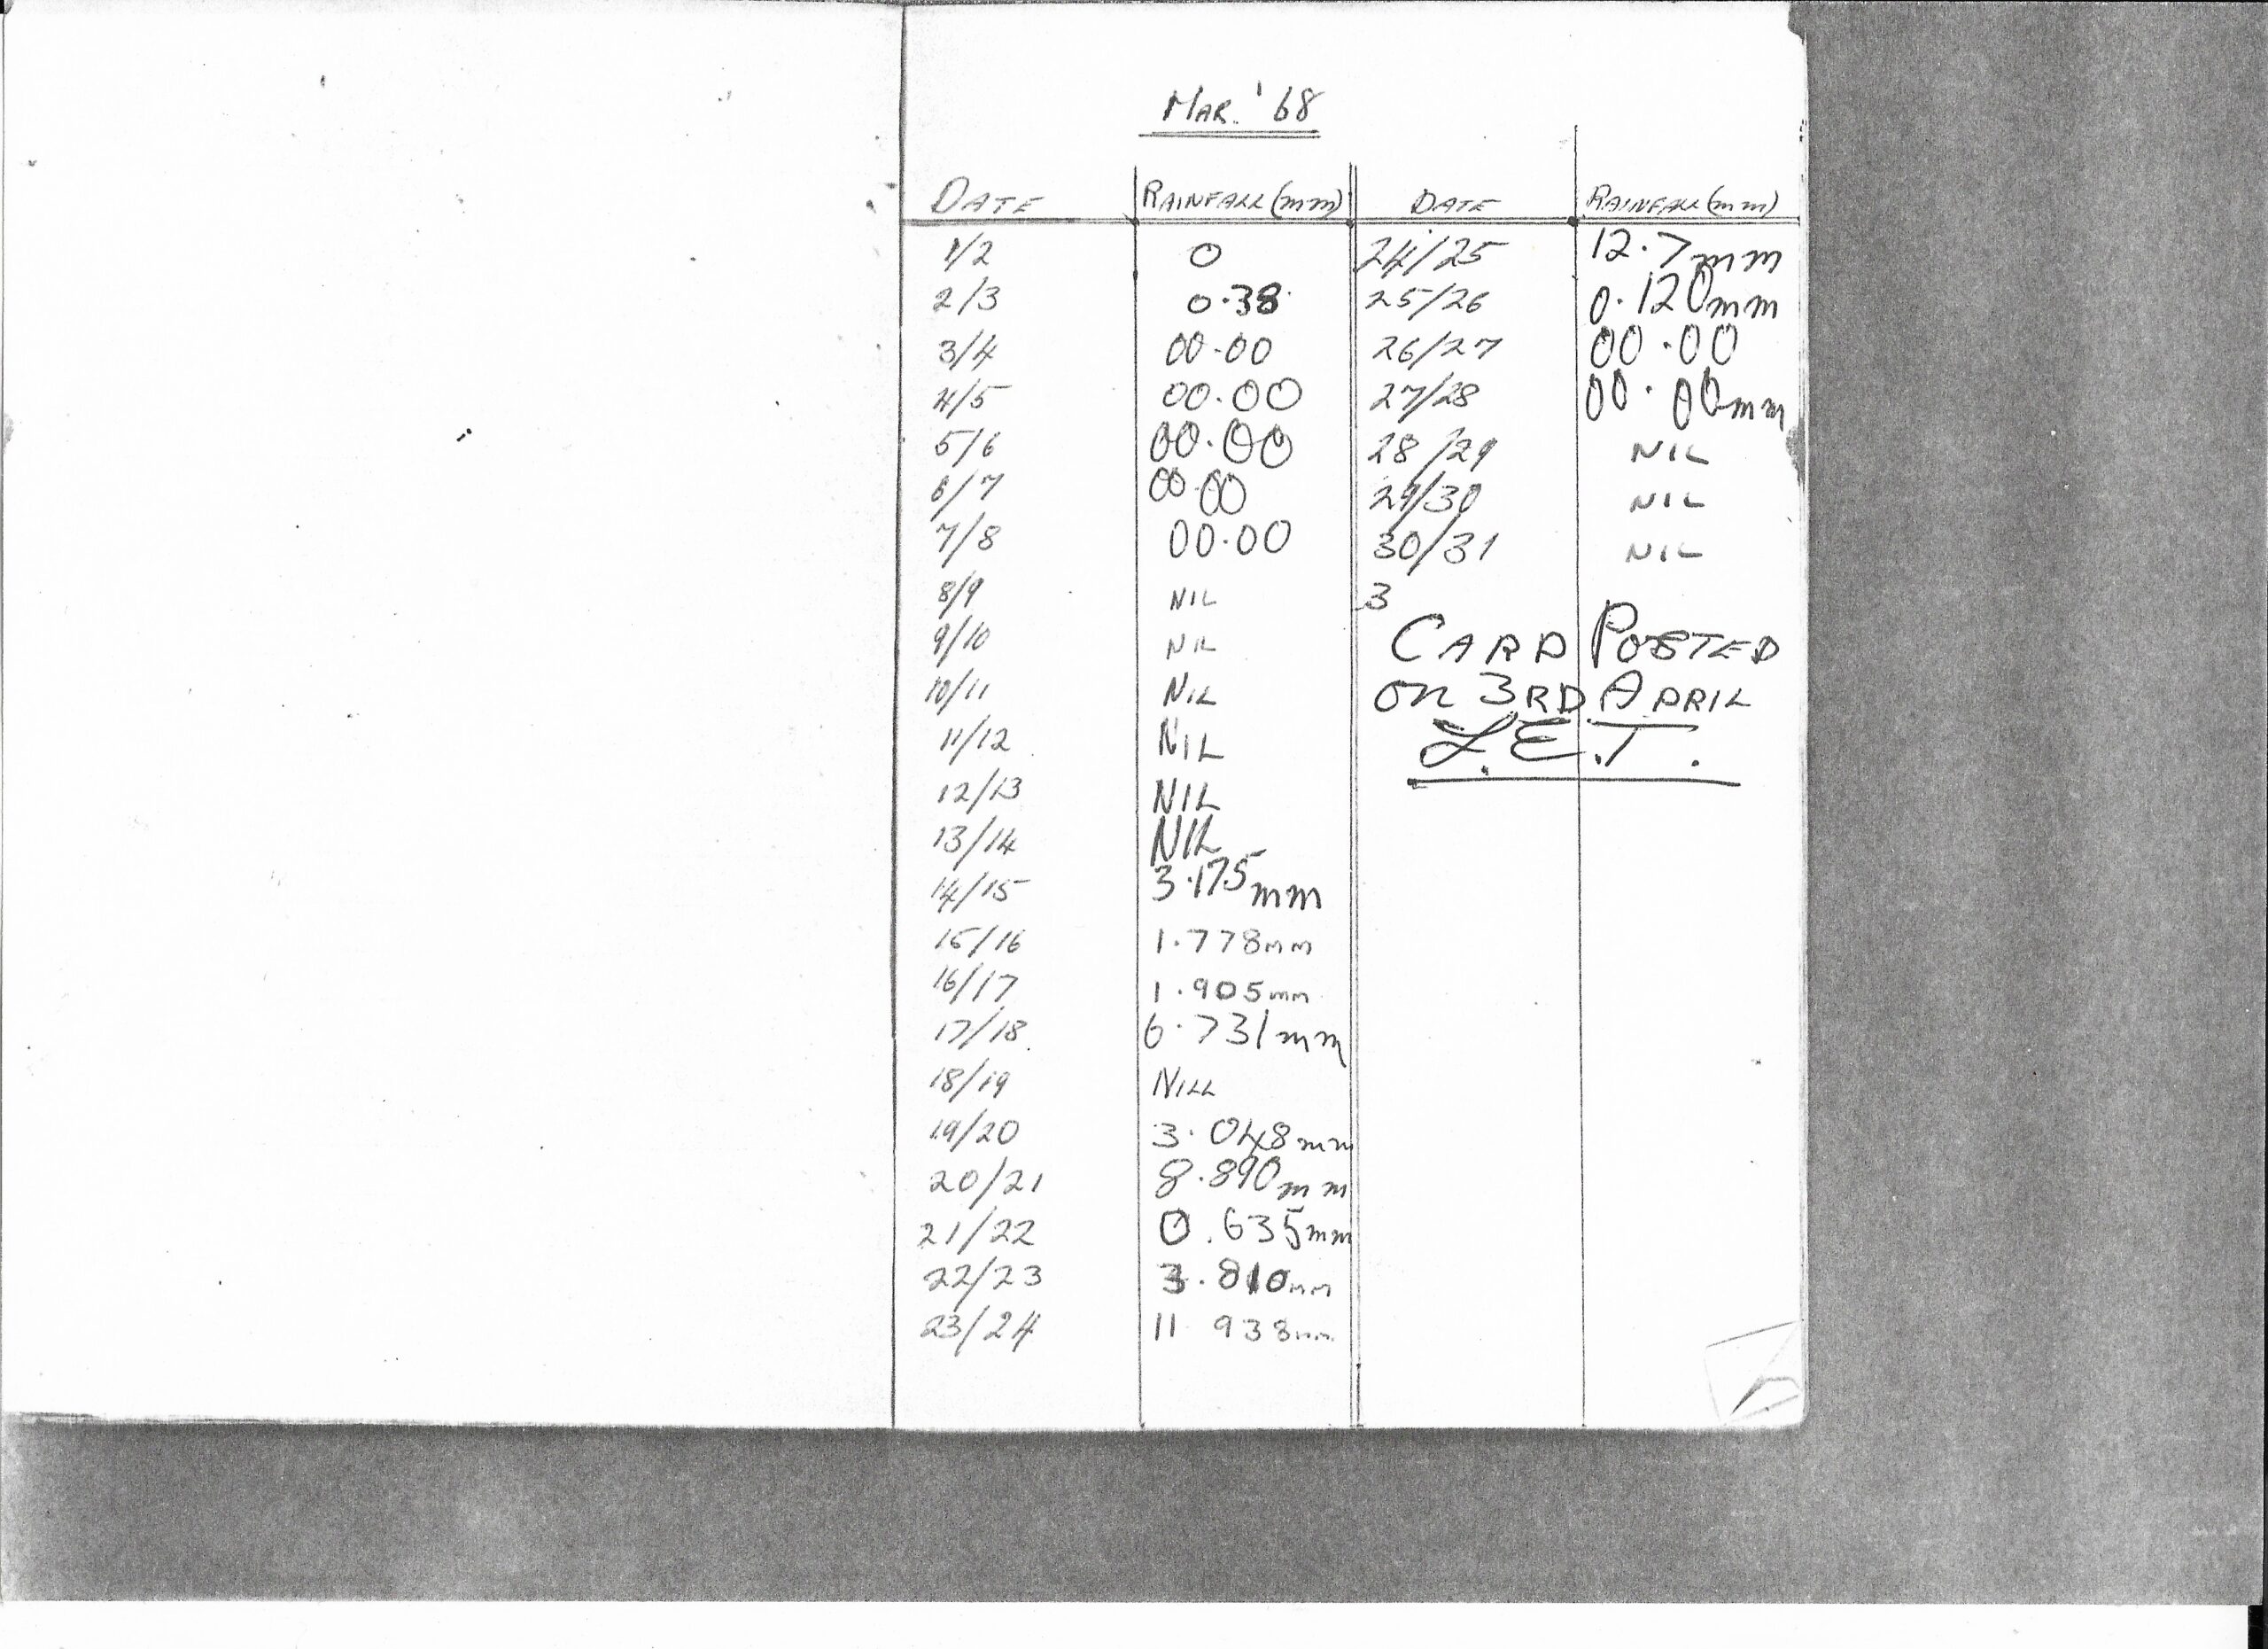 MAR. '68
DATE RAINFALL (mm) DATE RAINFALL (mm)
1/2 0 24/25 12.7mm
2/3 0.38 25/26 0.120mm
3/4 00.00 26/27 00.00
4/5 00.00 27/28 00.00mm
5/6 00.00 28/29 NIL
6/7 00.00 29/30 NIL
7/8 00.00 30/31 NIL
8/9 NIL 3
9/10 NIL CARD POSTED
10/11 NIL on 3RD APRIL
11/12 NIL L.E.T.
12/13 NIL
13/14 NIL
14/15 3.175mm
15/16 1.778mm
16/17 1.905mm
17/18 6.731mm
18/19 NILL
19/20 3.048mm
20/21 8.890mm
21/22 0.635mm
22/23 3.810mm
23/24 11 938mm